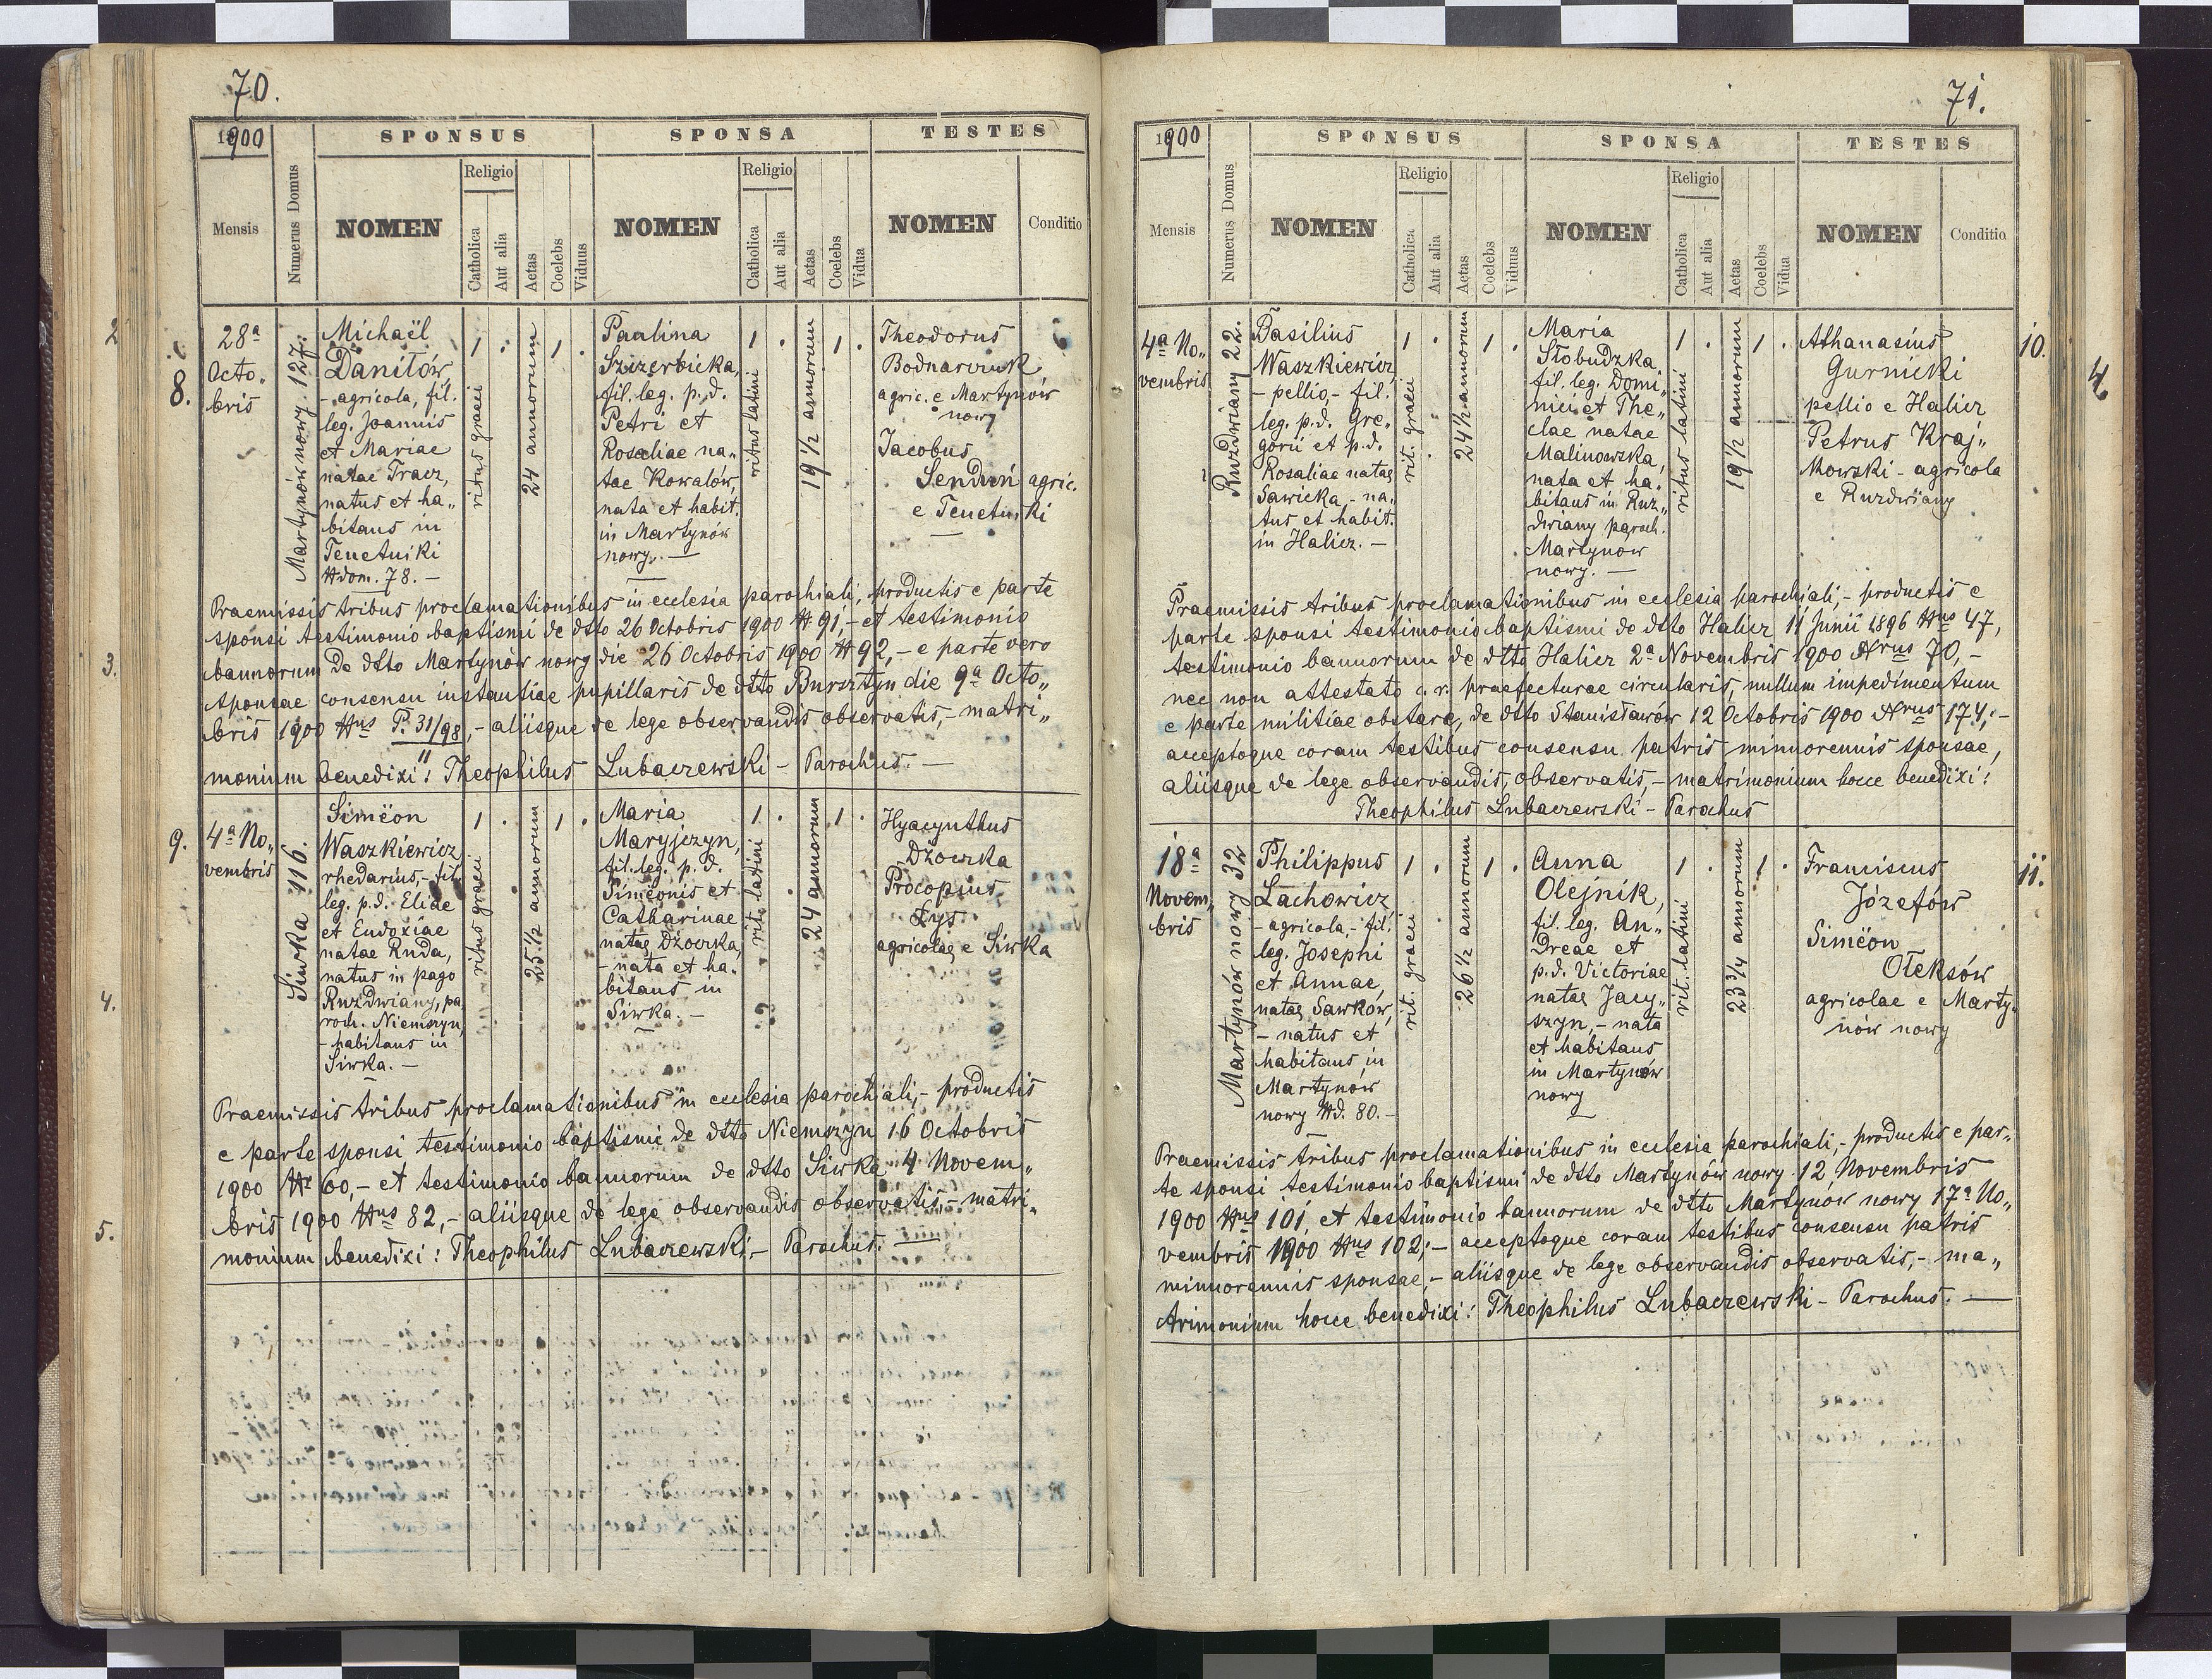 70.
1900
SPONSUS
SPONSA
TESTES
Mensis
Numerus Domus
NOMEN
Religio
Catholica
Aut alia
Aetas
Coelebs
Viduus
NOMEN
Religio
Catholica
Aut alia
Aetas
Coelebs
Vidua
NOMEN
Conditio
8.
28a
Octo„
bris
Martynów nowy. 127.
Michaël
Daniłów
- agricola, fil.
leg. Joannis
et Mariae
natae Tracz,
natus et ha„
bitans in
Tenetniki
Ndom. 78. —
1
ritus graeci
.
24 annorum
1
.
Paulina
Szczerbicka,
fil. leg. p. d.
Petri et
Rosaliae na„
tae Kowalów,
nata et habit.
in Martynów
nowy. —
1
ritus latini
.
19 1/2 annorum
1
.
Theodorus
Bodnarczuk
agric. e Martynów
nowy
Jacobus
Senduń agric.
e Tenetniki
Praemissis tribus proclamationibus in ecclesia parochiali, productis e parte
sponsi testimonio baptismi de dtto 26 Octobris 1900 N 91, - et testimonio
bannorum de dtto Martynów nowy die 26 Octobris 1900 N 92, - e parte vero
sponsae consensu instantiae pupillaris de dtto Bursztyn die 9a Octo„
bris 1900 Nus P. 31/98/11, - aliisque de lege observandis observatis, - matri„
monium benedixi: Theophilus Lubaczewski - Parochus. —
9.
4a No„
vembris
Siwka 116.
Simëon
Waszkiewicz
rhedarius, - fil.
leg. p. d. Eliae
et Eudoxiae
natae Ruda,
natus in pago
Ruzdwiany, pa
roch. Niemszyn,
- habitans in
Siwka. —
1
ritus graeci
.
25 1/2 annorum
1
.
Maria
Maryjczyn,
fil. leg. p. d.
Simëonis et
Catharinae
natae Dżowka,
- nata et ha„
bitans in
Siwka. —
1
rit. latini
.
24 annorum
1
.
Hyacynthus
Dżowka
Procopius
Łys
agricolae e Siwka
Praemissis tribus proclamationibus in ecclesia parochiali, - productis
e parte sponsi testimonio baptismi de dtto Niemszyn 16 Octobris
1900 Nr 60, - et testimonio bannorum de dtto Siwka 4 Novem„
bris 1900 Nus 82, - aliisque de lege observandis observatis, - matri„
monium benedixi: Theophilus Lubaczewski, - Parochus. —
2
3.
4.
5.
71.
1900
SPONSUS
SPONSA
TESTES
Mensis
Numerus Domus
NOMEN
Religio
Catholica
Aut alia
Aetas
Coelebs
Viduus
NOMEN
Religio
Catholica
Aut alia
Aetas
Coelebs
Vidua
NOMEN
Conditio
4a No„
vembris
Ruzdwiany 22.
Basilius
Waszkiewicz
- pellio, - fil.
leg. p. d. Gre„
gorii et p. d.
Rosaliae natae
Sawicka - na„
tus et habit.
in Halicz. —
1
rit. graeci
.
24 1/2 annorum
1
.
Maria
Słobudzka,
fil. leg. Domi„
nici et The„
clae natae
Malinowska,
nata et ha„
bitans in Ruz„
dwiany paroch.
Martynów
nowy. —
1
ritus latini
.
19 1/2 annorum
1
.
Athanasius
Gurnicki
pellio e Halicz
Petrus Kraj„
kowski - agricola
e Ruzdwiany
10.
Praemissis tribus proclamationibus in ecclesia parochiali, - productis e
parte sponsi testimonio baptismi de dtto Halicz 11 Junii 1896 Nus 47,
testimonio bannorum de dtto Halicz 2a Novembris 1900 Nrus 70, -
nec non attestato c. r. praefecturae circularis, nullum impedimentum
e parte militiae obstare, de dtto Stanisławów 12 Octobris 1900 Nrus 174, -
acceptoque coram testibus consensu patris minorennis sponsae,
aliisque de lege observandis, observatis, - matrimonium hocce benedixi!
Theophilus Lubaczewski - Parochus
18a
Novem„
bris
Martynów nowy 32
Philippus
Lachowicz
- agricola, - fil.
leg. Josephi
et Annae,
natae Sawków,
- natus et
habitans in
Martynów
nowy Nd. 80. -
1
rit. graeci
.
26 1/2 annorum
1
.
Anna
Olejnik,
fil. leg. An„
dreae et
p. d. Victoriae
natae Jacy„
szyn, - nata
et habitans
in Martynów
nowy
1
rit. latini
.
23 3/4 annorum
1
.
Franciscus
Józefów
Simëon
Ołeksów
agricolae e Marty„
nów nowy
11.
Praemissis tribus proclamationibus in ecclesia parochiali, - productis e par„
te sponsi testimonio baptismi de dtto Martynów nowy 12 Novembris
1900 Nus 101, et testimonio bannorum de dtto Martynów nowy 17a No„
vembris 1900 Nus 102; - acceptoque coram testibus consensu patris
minorennis sponsae, - aliisque de lege observandis observatis, - ma„
trimonium hocce benedixi! Theophilus Lubaczewski - Parochus. —
4